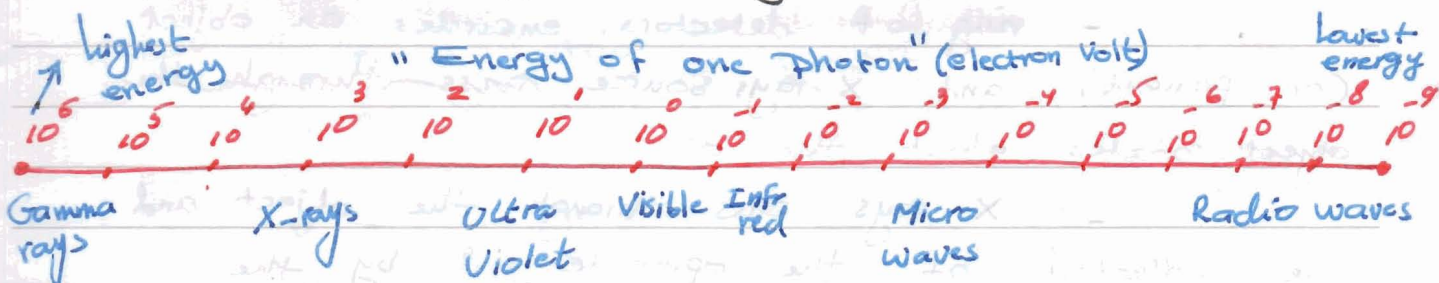 highest energy
"Energy of one photon" (electron volt)
Lowest energy
10⁶ 10⁵ 10⁴ 10³ 10² 10¹ 10⁰ 10⁻¹ 10⁻² 10⁻³ 10⁻⁴ 10⁻⁵ 10⁻⁶ 10⁻⁷ 10⁻⁸ 10⁻⁹
Gamma rays
X-rays
Ultra Violet
Visible
Infr red
Micro waves
Radio waves